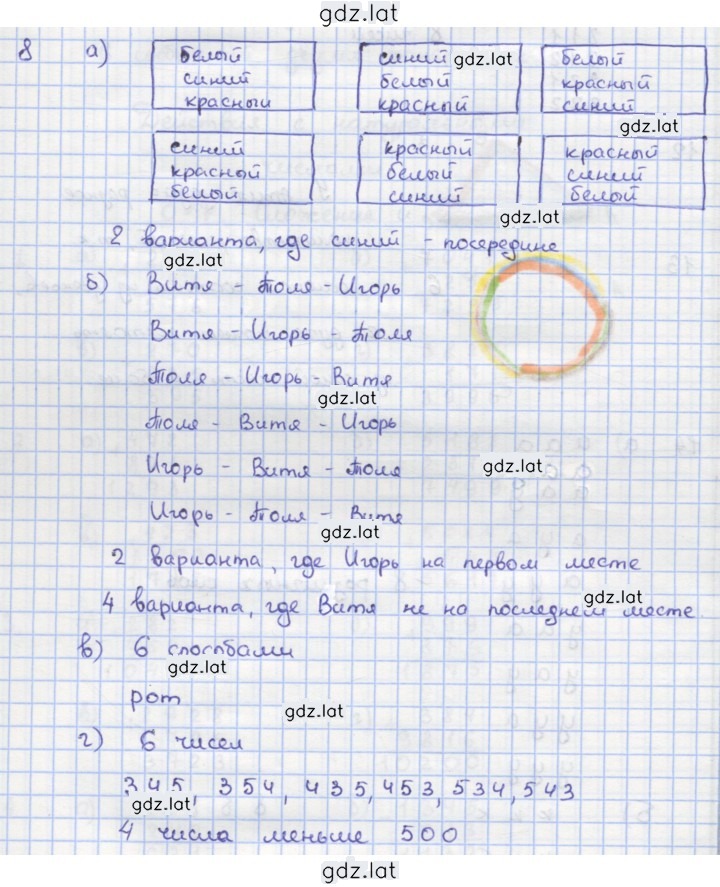 gdz.lat
8 а) белый синий gdz.lat белый
синий белый красный
красный красный синий
gdz.lat
синий красный красный
красный белый синий
белый синий белый
gdz.lat
2 варианта, где синий - посередине
gdz.lat
б) Витя - Толя - Игорь
Витя - Игорь - Толя
Толя - Игорь - Витя
gdz.lat
Толя - Витя - Игорь
Игорь - Витя - Толя gdz.lat
Игорь - Толя - Витя
gdz.lat
2 варианта, где Игорь на первом месте
gdz.lat
4 варианта, где Витя не на последнем месте
в) 6 способами
gdz.lat
рот
gdz.lat
г) 6 чисел
345, 354, 435, 453, 534, 543
gdz.lat
4 числа меньше 500
gdz.lat